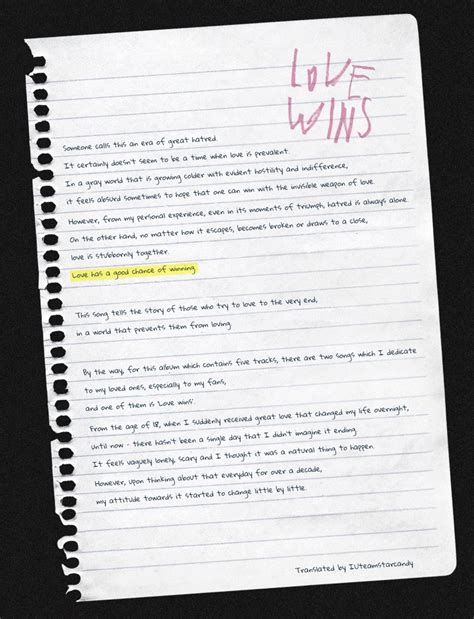 LOVE
WINS
Someone calls this an era of great hatred.
It certainly doesn't seem to be a time when love is prevalent.
In a gray world that is growing colder with evident hostility and indifference,
it feels absurd sometimes to hope that one can win with the invisible weapon of love.
However, from my personal experience, even in its moments of triumph, hatred is always alone.
On the other hand, no matter how it escapes, becomes broken or draws to a close,
love is stubbornly together.
Love has a good chance of winning.
This song tells the story of those who try to love to the very end,
in a world that prevents them from loving.
By the way, for this album which contains five tracks, there are two songs which I dedicate
to my loved ones, especially to my fans,
and one of them is 'Love wins'.
From the age of 18, when I suddenly received great love that changed my life overnight,
until now - there hasn't been a single day that I didn't imagine it ending.
It feels vaguely lonely, scary and I thought it was a natural thing to happen.
However, upon thinking about that everyday for over a decade,
my attitude towards it started to change little by little.
Translated by IUteamstarcandy